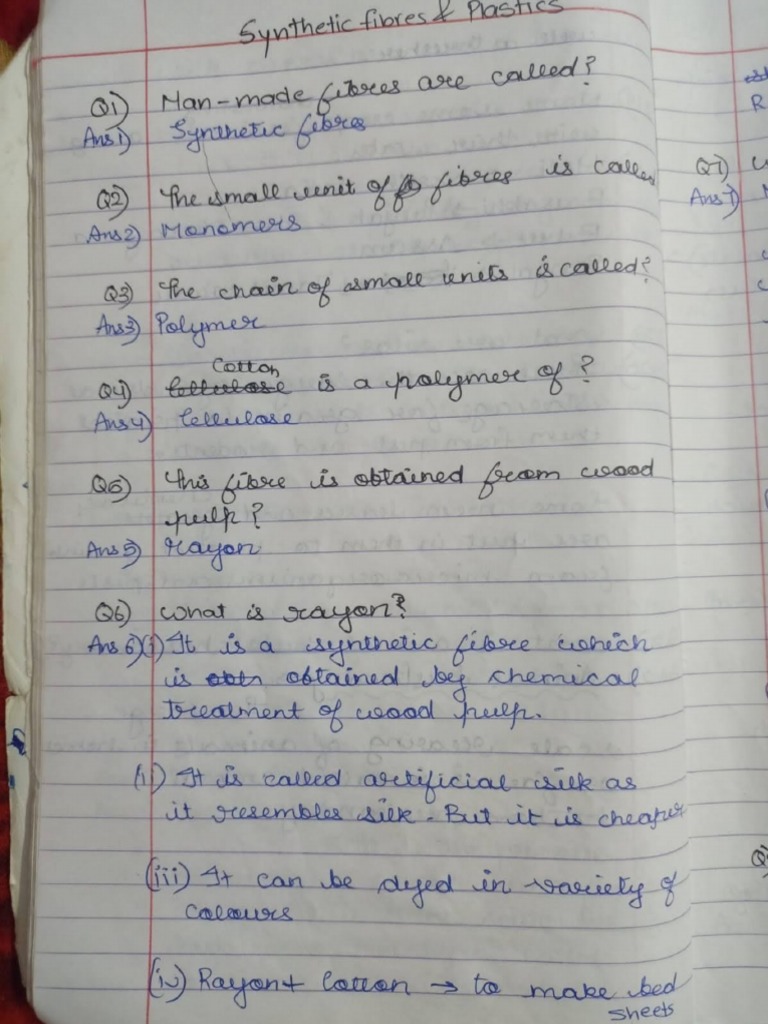 Synthetic fibres & Plastics
Q1) Man-made fibres are called?
Ans1) Synthetic fibres
Q2) The small unit of fibres is called
Ans2) Monomers
Q3) The chain of small units is called?
Ans3) Polymer
Cotton
Q4) Cellulose is a polymer of?
Ans4) Cellulose
Q5) This fibre is obtained from wood
pulp?
Ans5) Rayon
Q6) What is rayon?
Ans6) (i) It is a synthetic fibre which
is obtained by chemical
treatment of wood pulp.
(ii) It is called artificial silk as
it resembles silk. But it is cheaper
(iii) It can be dyed in variety of
colours
(iv) Rayon + Cotton → to make bed
sheets
R
Q7)
Ans7)